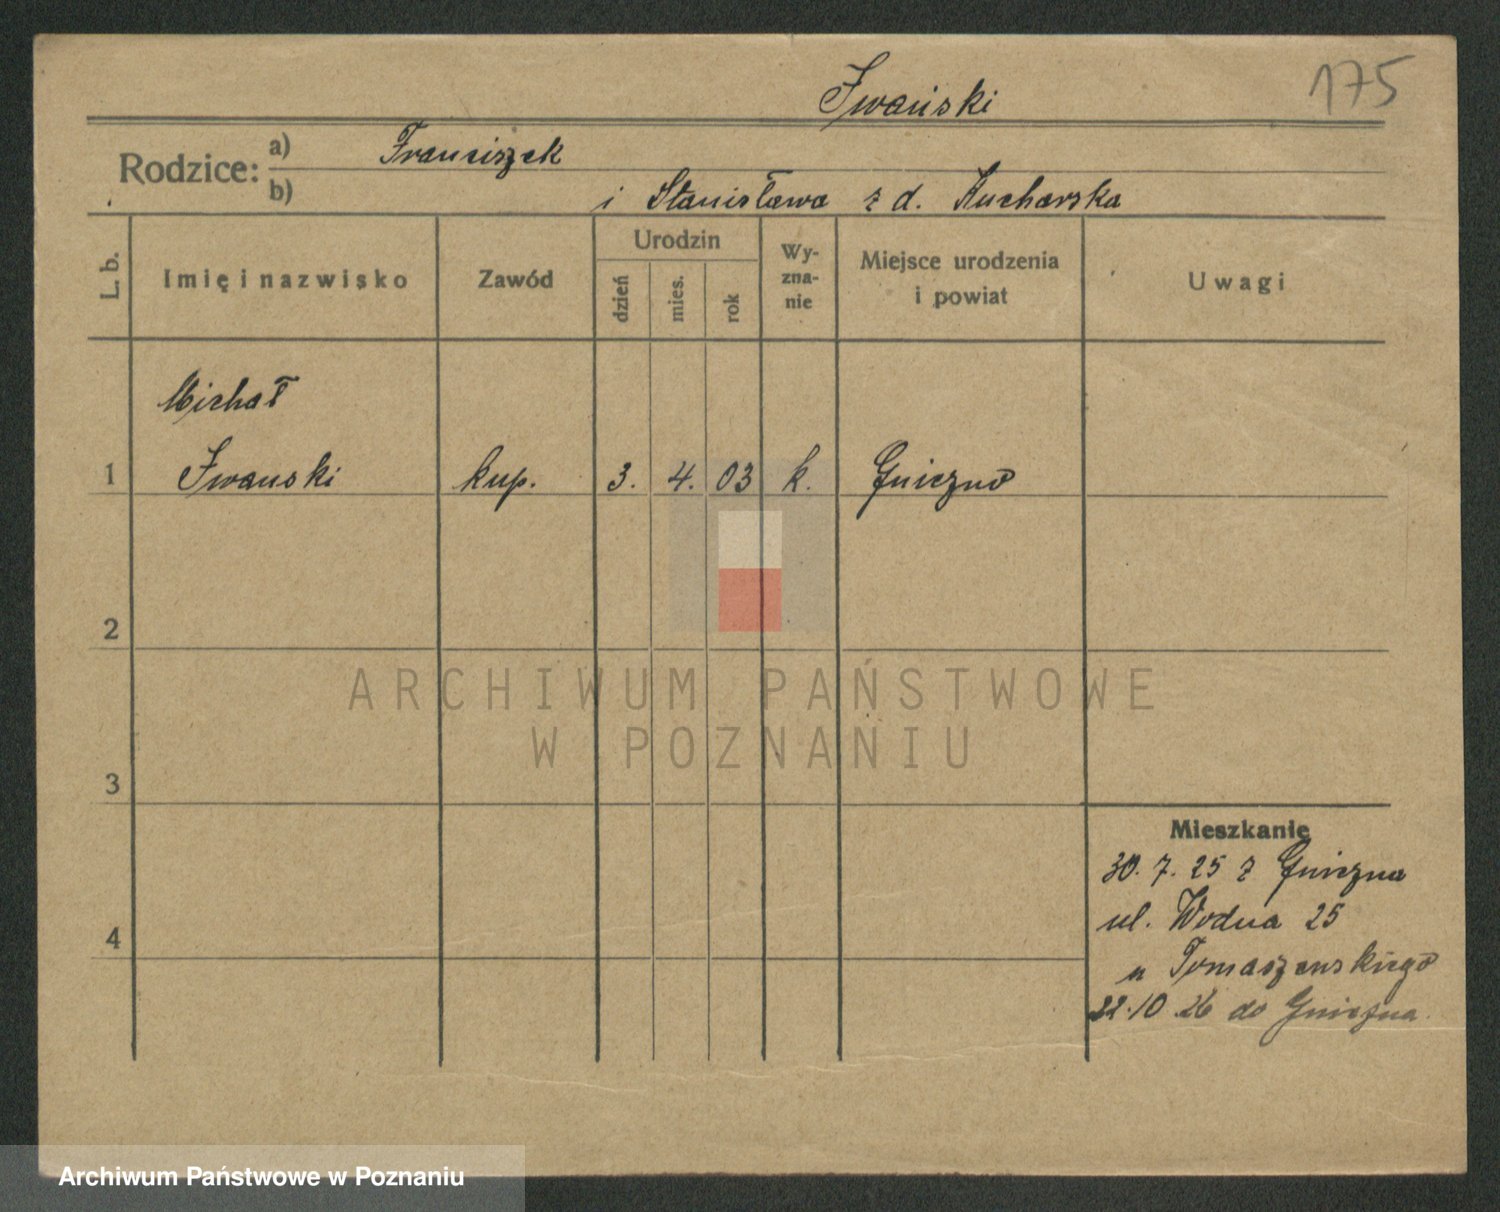 175
Iwański
Rodzice: a) Franciszek
b) i Stanisława z d. Kucharska
L. b. Imię i nazwisko Zawód Urodzin dzień mies. rok Wy-zna-nie Miejsce urodzenia i powiat Uwagi
Michał
1 Iwanski kup. 3. 4. 03 k. Gniezno
2
3
4
Mieszkanie
30. 7. 25 z Gniezna
ul. Wodna 25
u Tomaszewskiego
22.10.26 do Gniezna.
ARCHIWUM PAŃSTWOWE
W POZNANIU
Archiwum Państwowe w Poznaniu